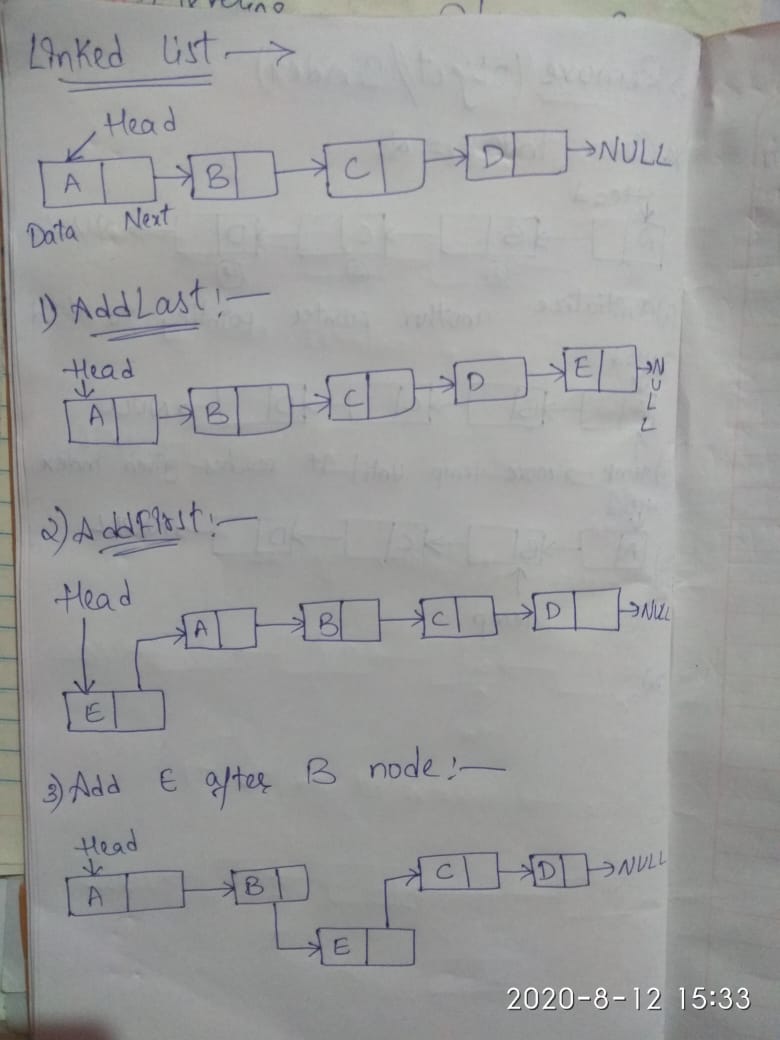 Linked List →
Head
A → B → C → D → NULL
Data Next
1) AddLast:—
Head
A → B → C → D → E → NULL
2) AddFirst:—
Head
A → B → C → D → NULL
E
3) Add E after B node:—
Head
A → B C → D → NULL
E
2020-8-12 15:33